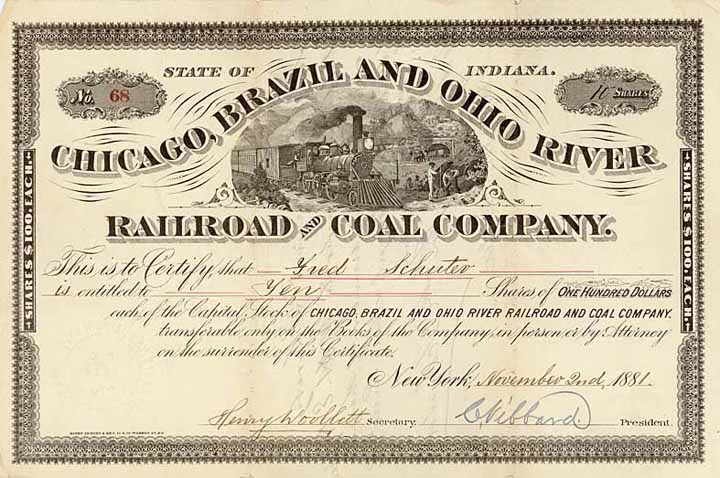 STATE OF INDIANA.
No. 68
10 SHARES
CHICAGO, BRAZIL AND OHIO RIVER
RAILROAD AND COAL COMPANY.
SHARES $100. EACH
SHARES $100. EACH
This is to Certify that Fred Schuter
is entitled to Ten Shares of ONE HUNDRED DOLLARS
each of the Capital Stock of CHICAGO, BRAZIL AND OHIO RIVER RAILROAD AND COAL COMPANY.
transferable only on the Books of the Company, in person or by Attorney
on the surrender of this Certificate.
New York, November 2nd, 1881.
Henry Woollett Secretary. C Hibbard. President.